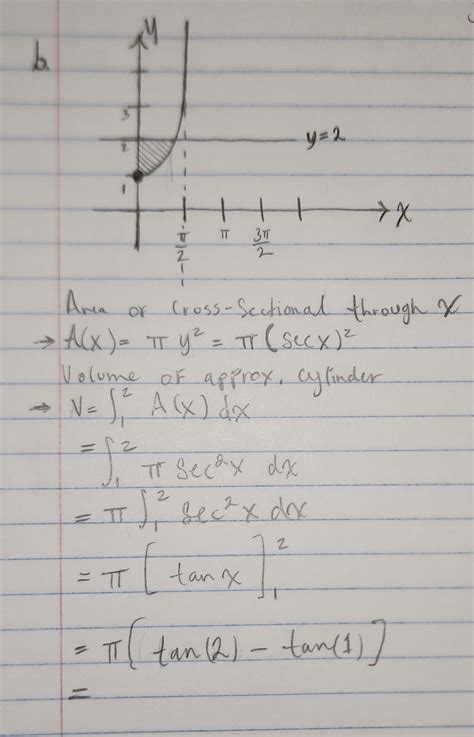 b.
y
3
2
y=2
1
x
π/2 π 3π/2
Area of Cross-Sectional through x
→ A(x) = π y² = π(sec x)²
Volume of approx. cylinder
→ V = ∫₁² A(x) dx
= ∫₁² π sec²x dx
= π ∫₁² sec²x dx
= π [ tan x ]₁²
= π[ tan(2) − tan(1) ]
=